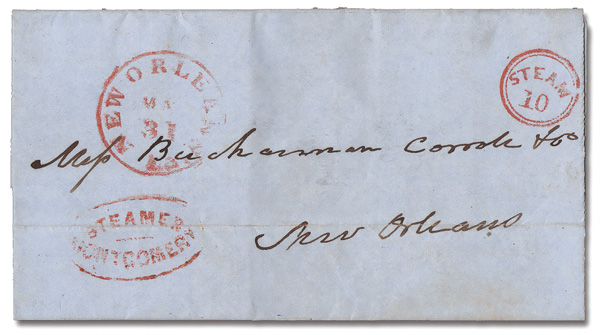 NEW ORLEANS
MA
31
LA
STEAM
10
Mess Buchannan Carroll & Co
STEAMER
MONTGOMERY
New Orleans